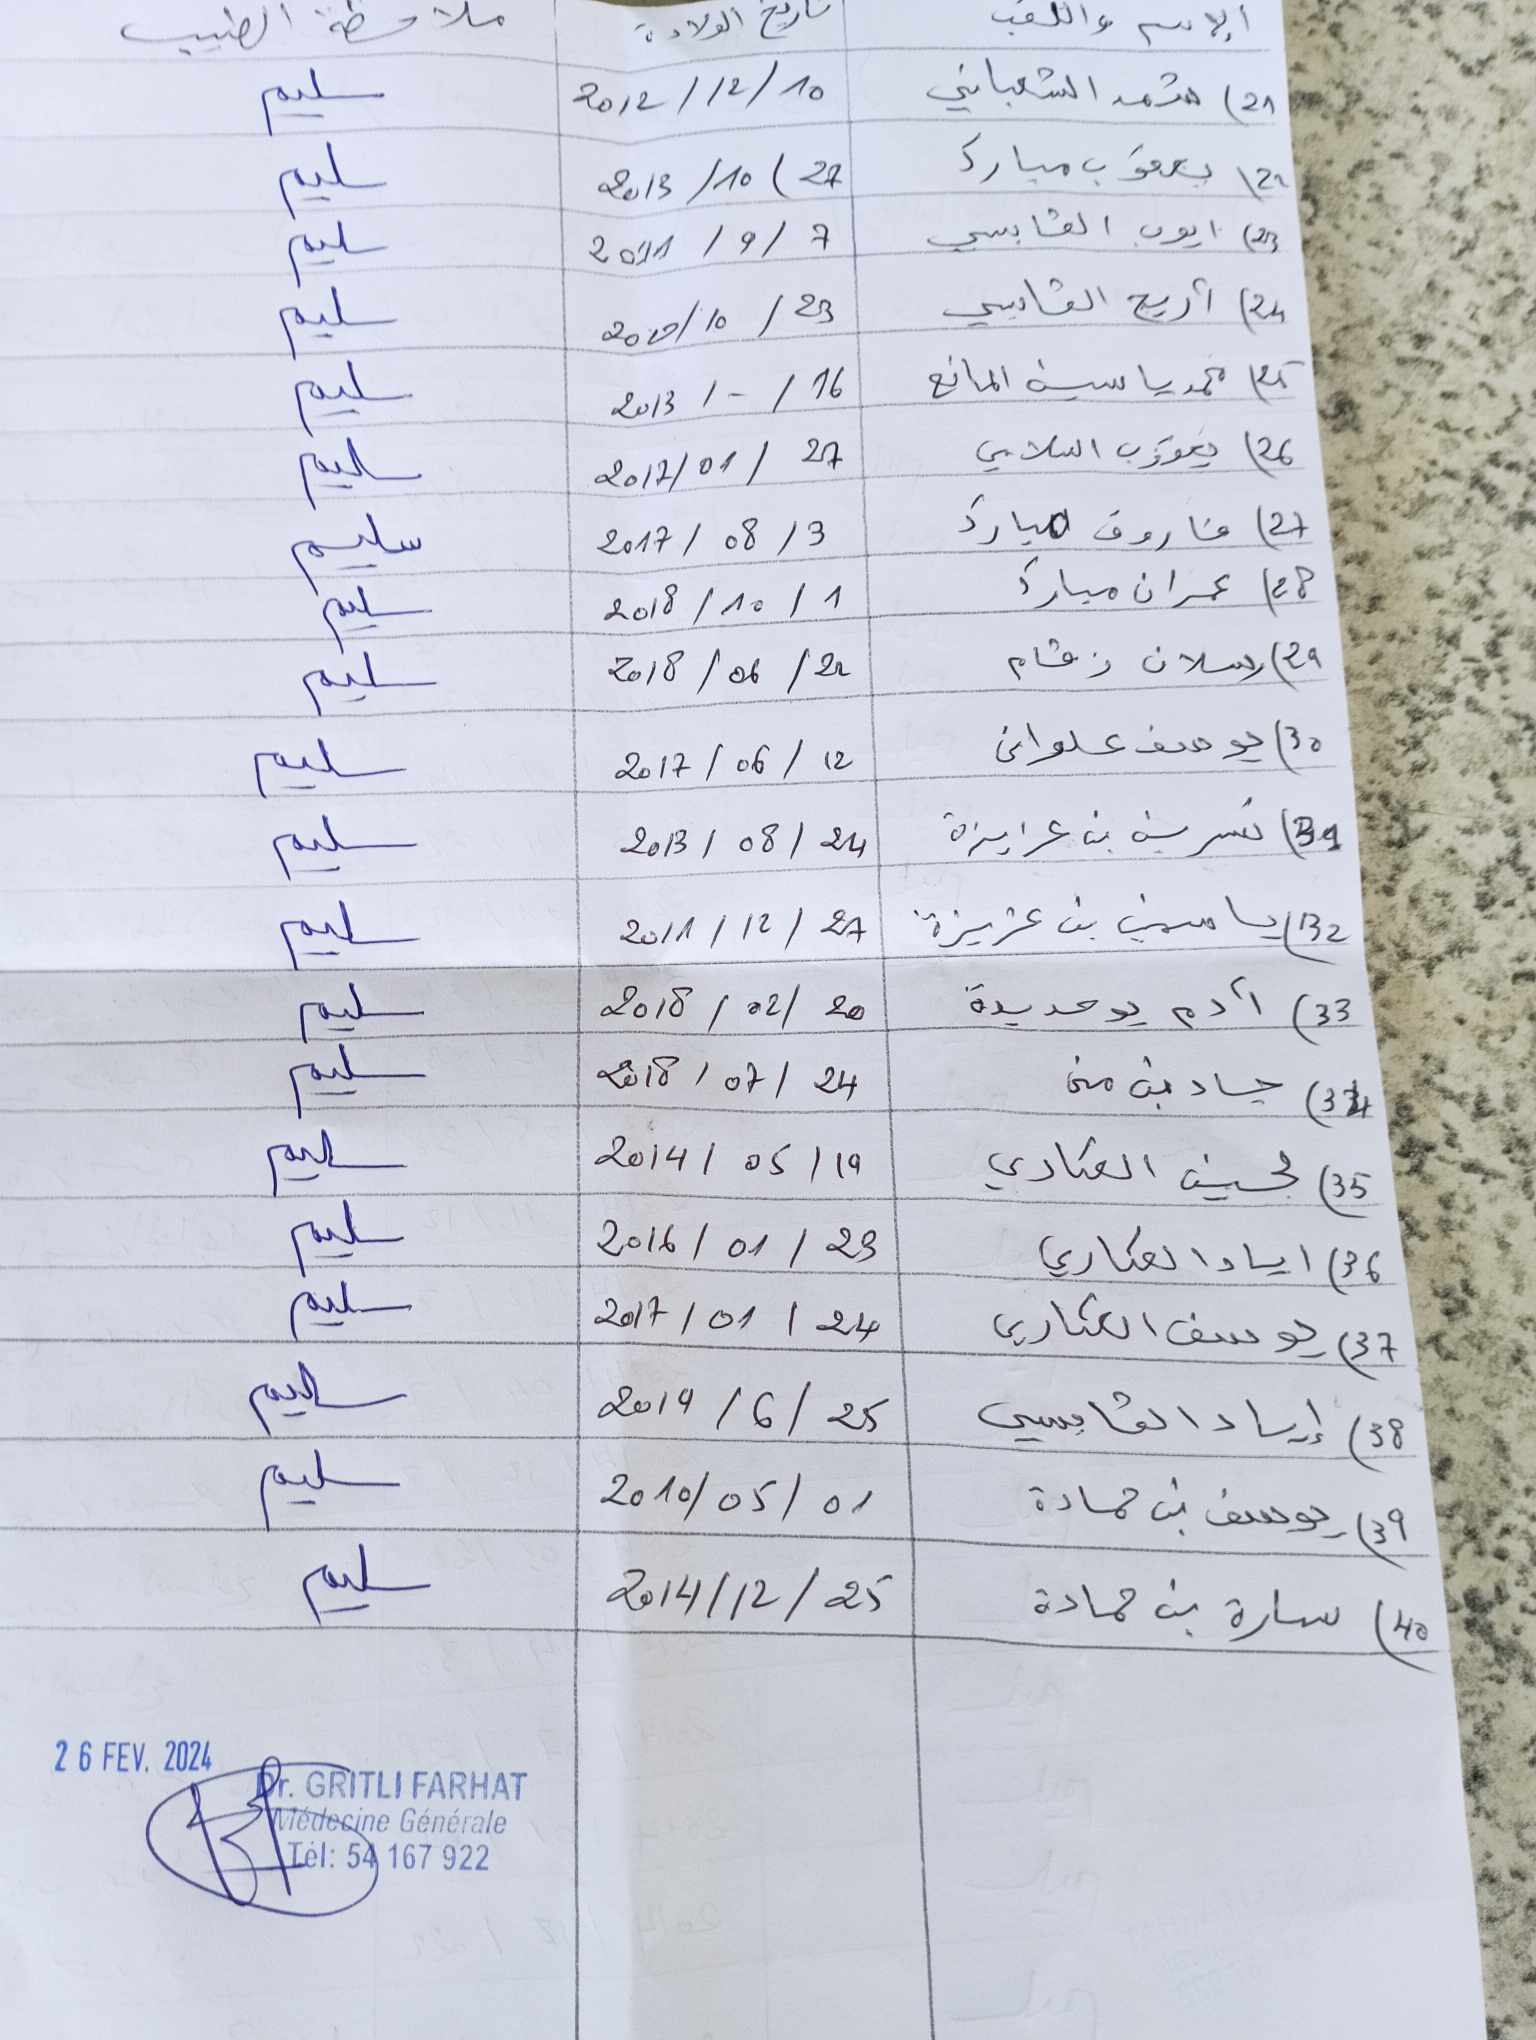 الاسم واللقب تاريخ الولادة ملاحظة الطبيب
21) محمد الشعباني 10/12/2012 سليم
22) يعقوب مبارك 27/10/2013 سليم
23) ايوب القابسي 7/9/2011 سليم
24) أريج القابسي 23/10/ سليم
25) محمد ياسين المانع 16/-/2013 سليم
26) يعقوب السلامي 27/01/2017 سليم
27) فاروق مبارك 3/08/2017 سليم
28) عمران مبارك 1/10/2018 سليم
29) رسلان زقام 22/06/2018 سليم
30) يوسف علواني 12/06/2017 سليم
31) نسرين بن عزيزة 24/08/2013 سليم
32) ياسمين بن عزيزة 27/12/2011 سليم
33) آدم بوحديدة 20/02/2018 سليم
34) جياد بن منى 24/07/2018 سليم
35) لحسين العكاري 19/05/2014 سليم
36) اياد العكاري 23/01/2016 سليم
37) يوسف العكاري 24/01/2017 سليم
38) إياد القابسي 25/6/2014 سليم
39) يوسف بن حمادة 01/05/2010 سليم
40) سارة بن حمادة 25/12/2014 سليم
26 FEV. 2024
Dr. GRITLI FARHAT
Médecine Générale
Tél: 54 167 922